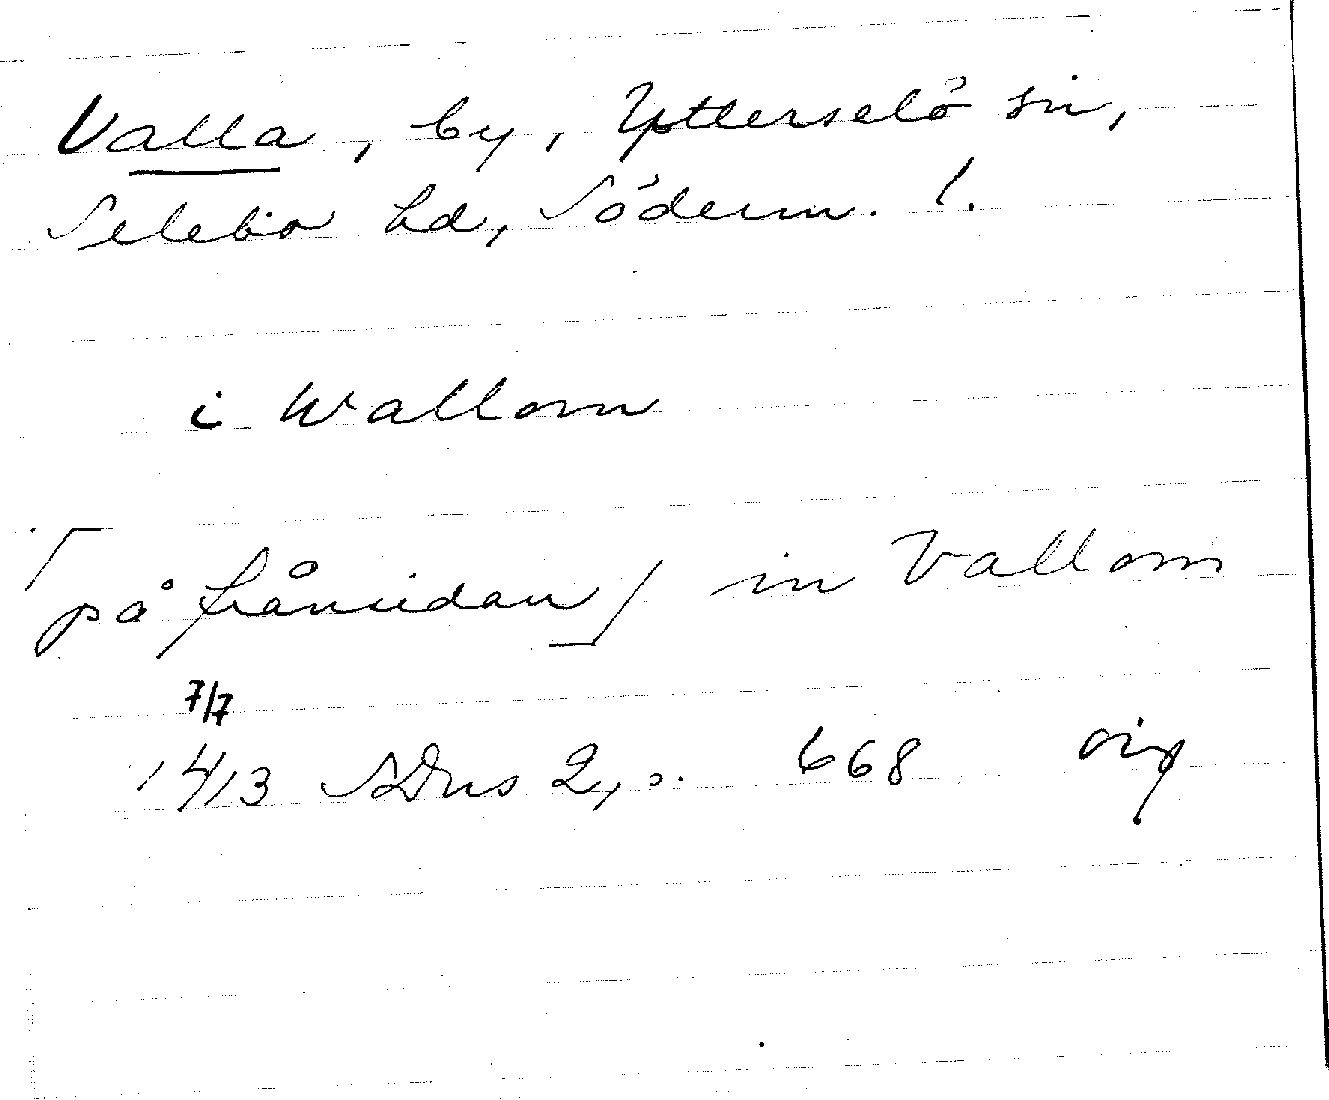 Valla, by, Ytterselö sn,
Selebo hd, Söderm. l.
i Wallom
[på frånsidan] in Vallom
7/7
1413 SDns 2, s. 668 orig